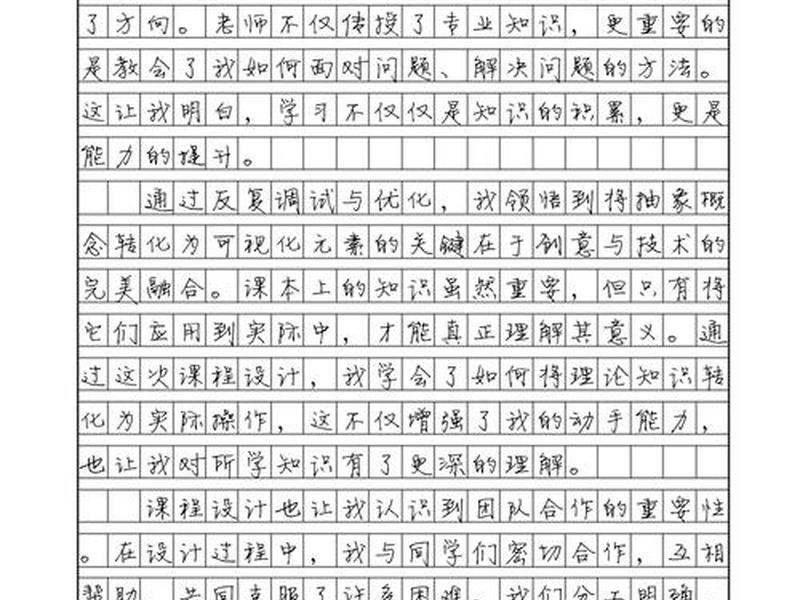 了方向。老师不仅传授了专业知识，更重要的
是教会了我如何面对问题、解决问题的方法。
这让我明白，学习不仅仅是知识的积累，更是
能力的提升。
通过反复调试与优化，我领悟到将抽象概
念转化为可视化元素的关键在于创意与技术的
完美融合。课本上的知识虽然重要，但只有将
它们应用到实际中，才能真正理解其意义。通
过这次课程设计，我学会了如何将理论知识转
化为实际操作，这不仅增强了我的动手能力，
也让我对所学知识有了更深的理解。
课程设计也让我认识到团队合作的重要性
。在设计过程中，我与同学们密切合作，互相
帮助，共同克服了许多困难。我们分工明确，